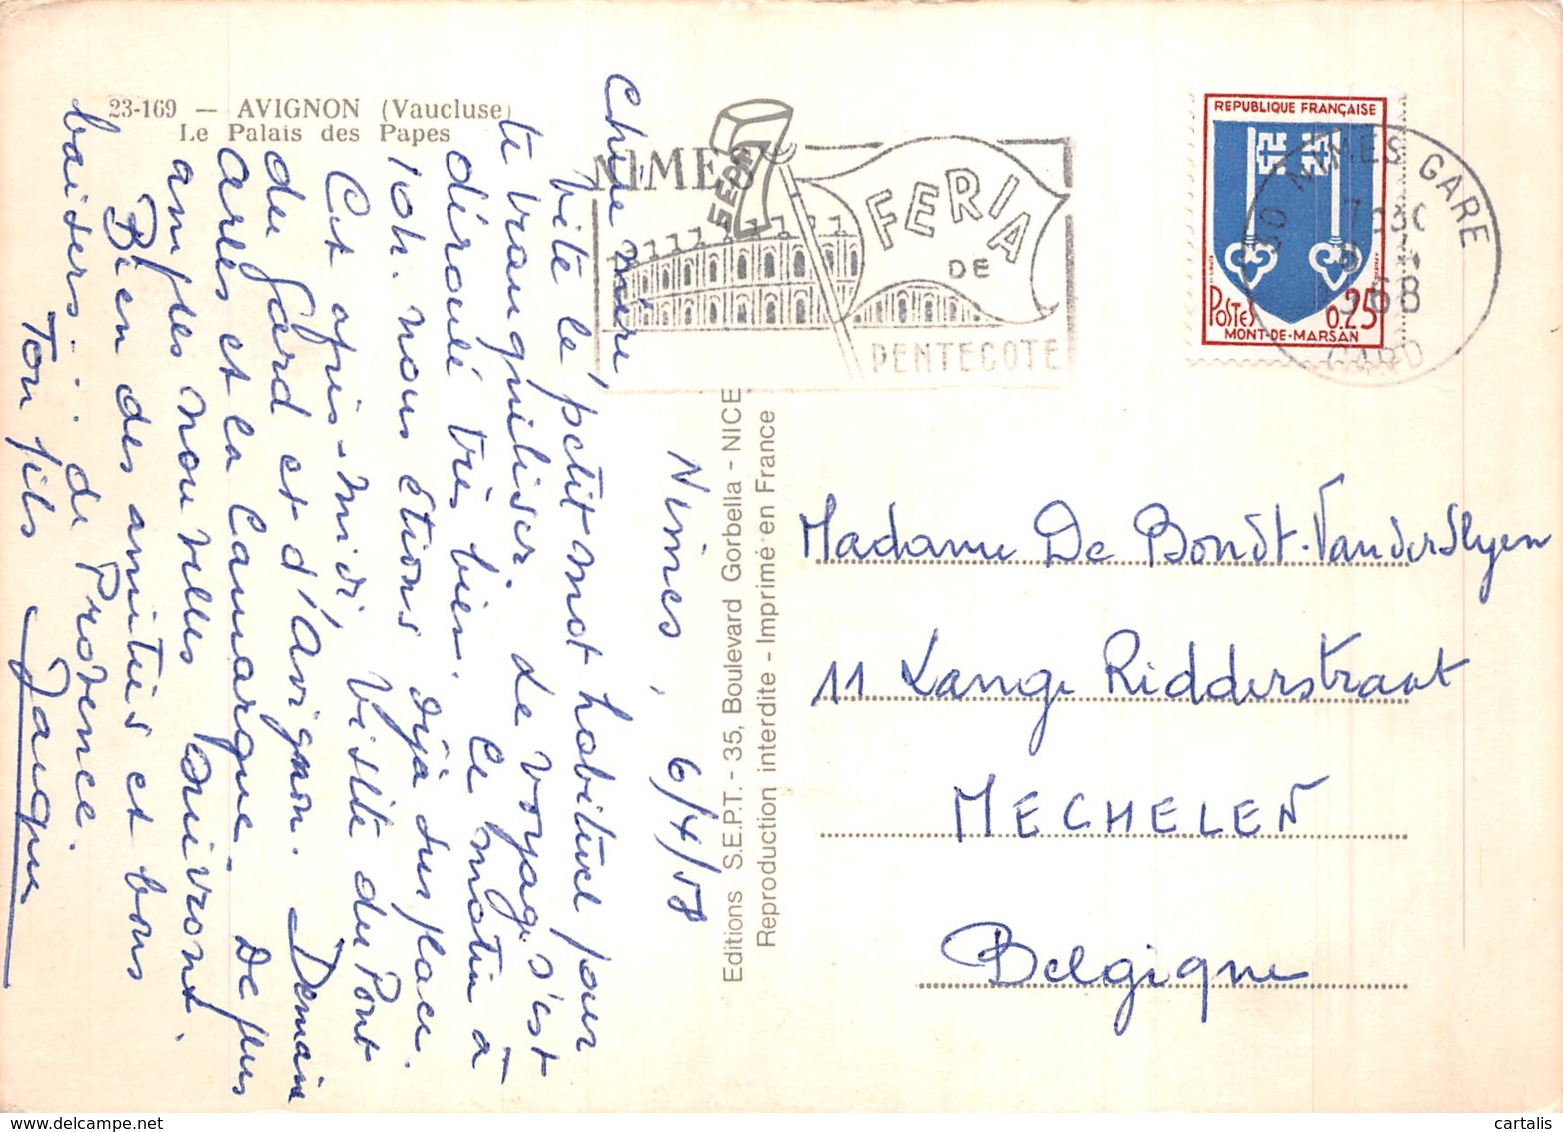 23-169 — AVIGNON (Vaucluse)
Le Palais des Papes
NIMES
FERIA
DE
PENTECOTE
REPUBLIQUE FRANÇAISE
POSTES 0.25
MONT-DE-MARSAN
NIMES GARE
GARD
Editions S.E.P.T. - 35, Boulevard Gorbella - NICE
Reproduction interdite - Imprimé en France
Nîmes, 6/4/58
Chère mère,
Vite le petit mot habituel pour
te tranquiliser. Le voyage s'est
déroulé très bien. Ce matin à
10h. nous étions déjà sur place.
Cet après-midi visite du Pont
du Gard et d'Avignon. Demain
Arles et la Camargue. De plus
amples nouvelles suivront.
Bien des amitiés et bons
baisers... de Provence.
Ton fils Jacques
Madame De Bondt-VanderSlyen
11 Lange Ridderstraat
MECHELEN
Belgique
cartalis